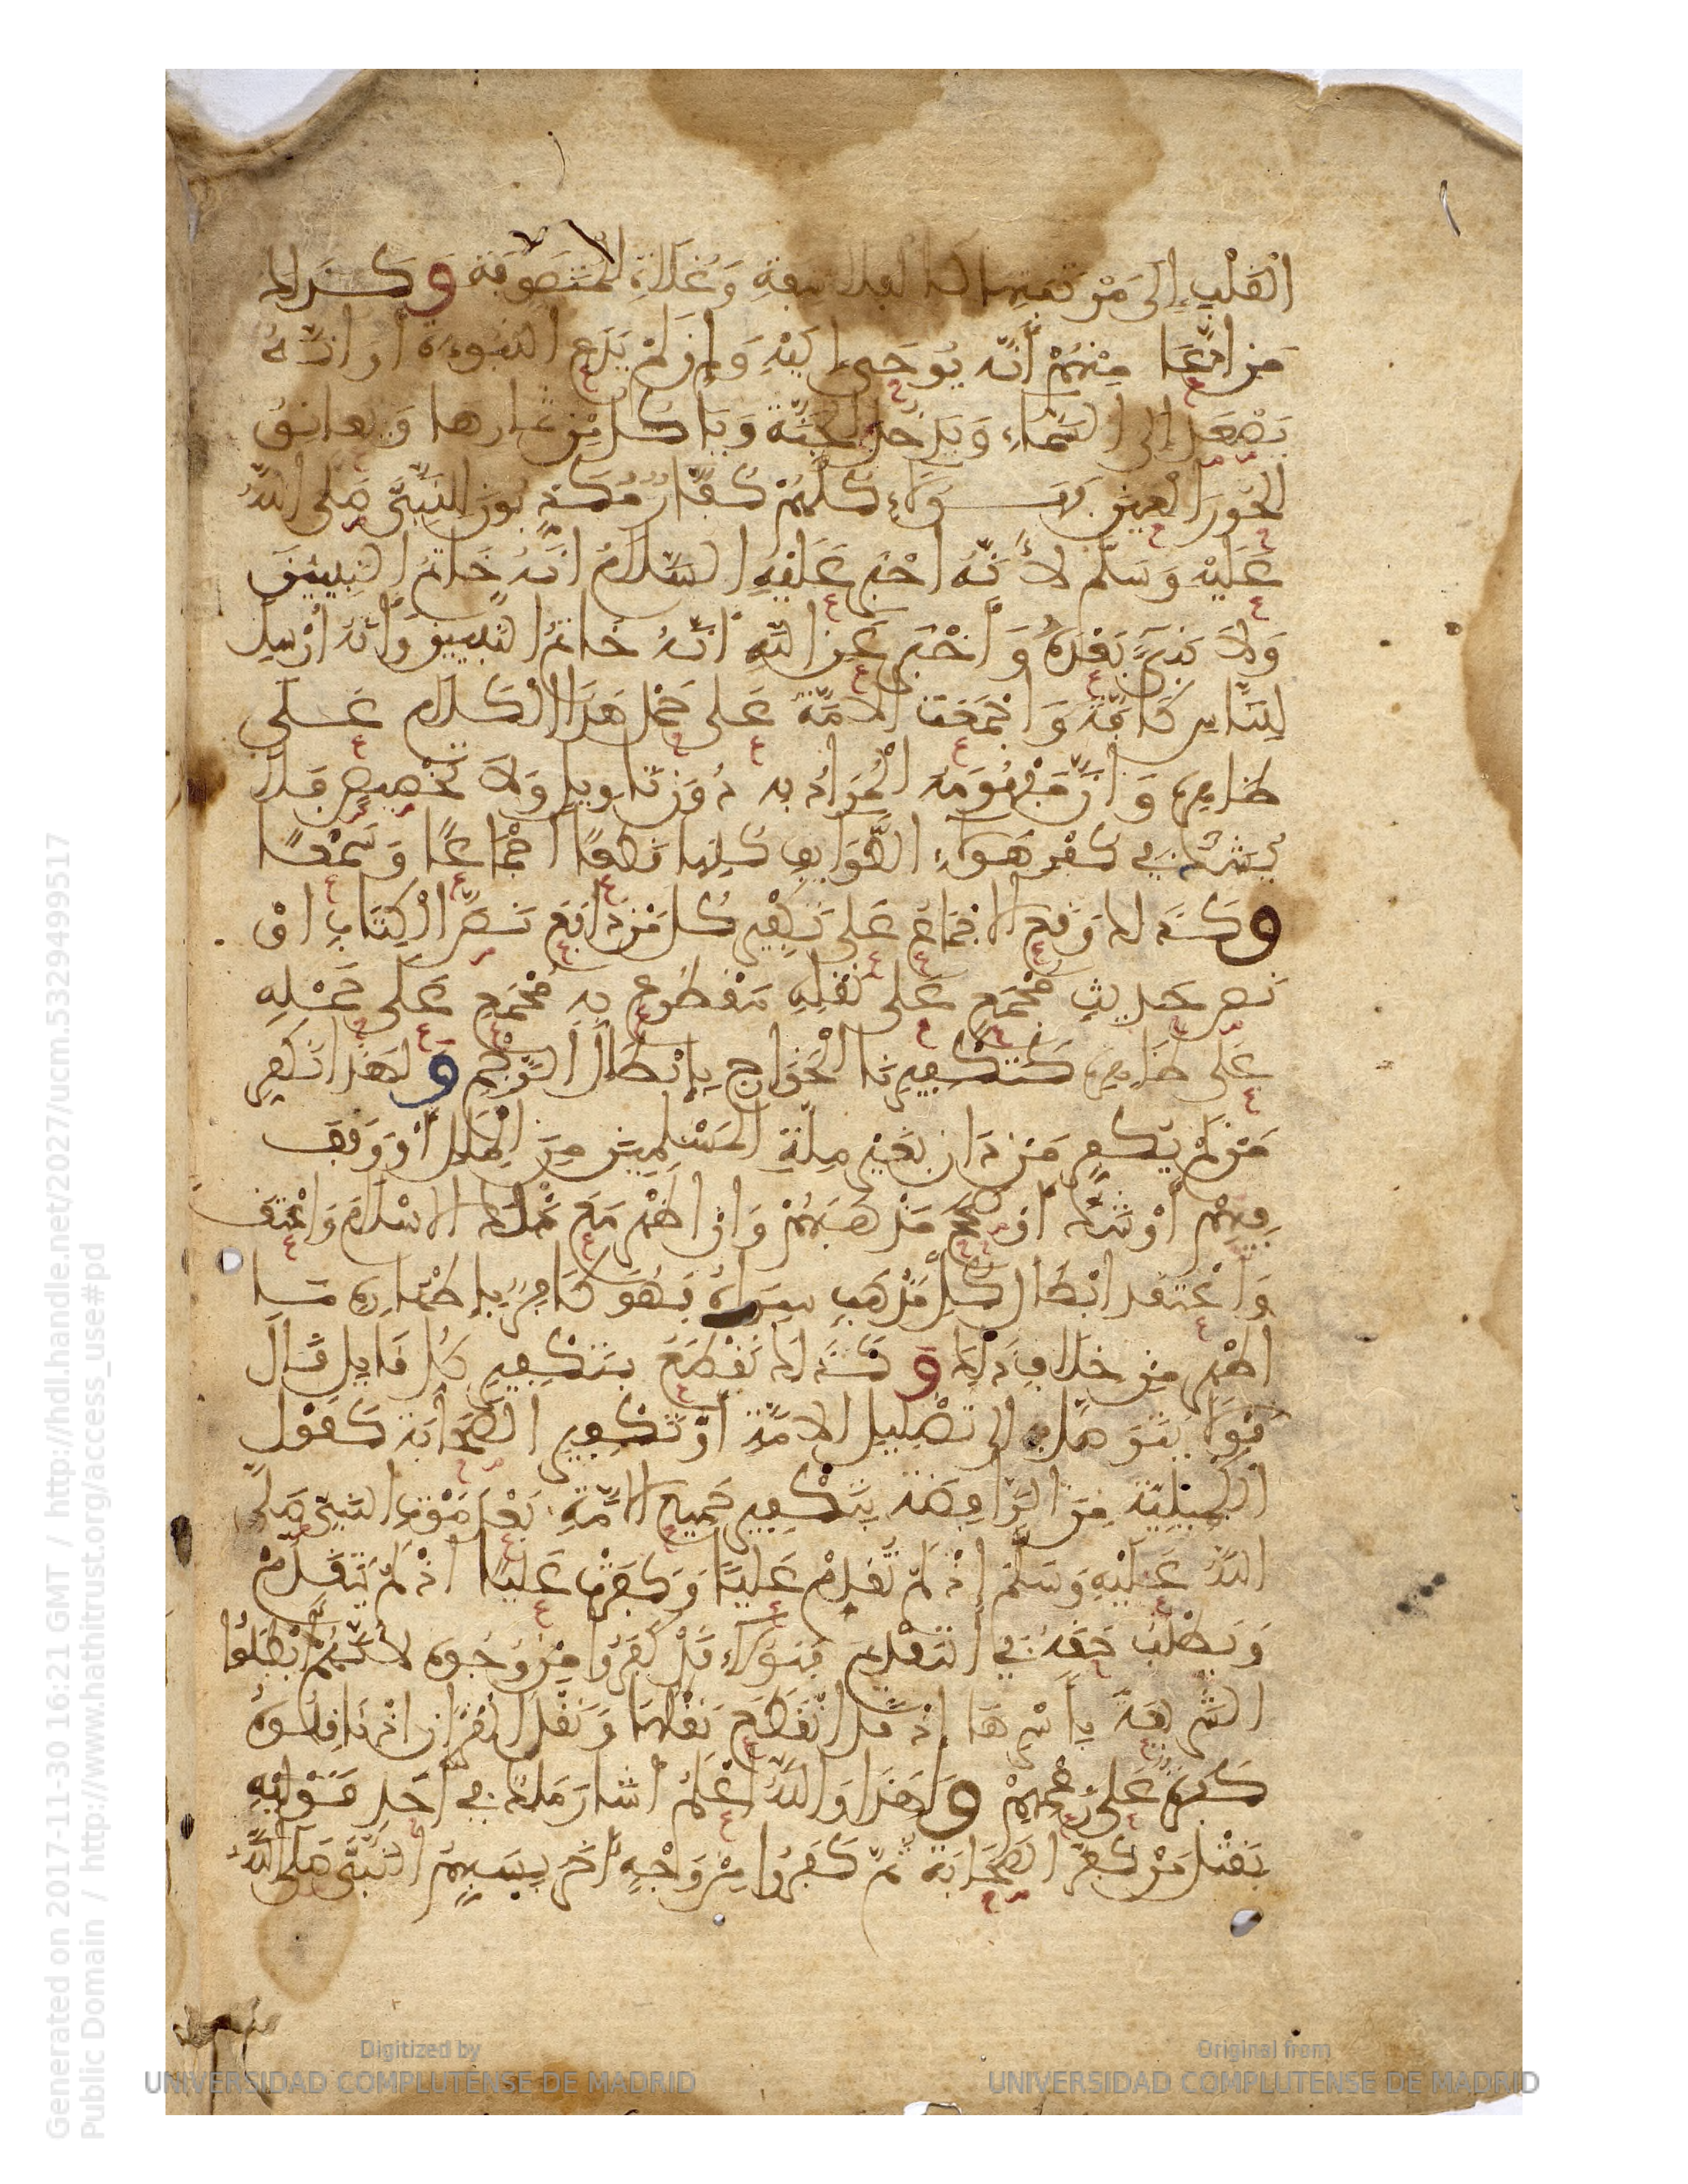 الْقَلْبِ إِلَى مَرْتَبَتِهَا كالفلاسفةِ وَغُلَاةِ المتصوِّفة وَكَذَلك
مَن ادَّعَا مِنْهُمْ أَنَّه يُوحَى إِلَيْهِ وَإِن لَمْ يَدَّعِ النبُوءَةَ أو انّهُ
يَصْعَد إلى السَّمَاءِ وَيَدْخُل الجَنَّةَ وَيَاكُل مِن ثمارها وَيعانِقُ
الحُورَ العِين فهَـؤلَاءِ كلُّهُمْ كُفَّارٌ مُكَذِّبُونَ النَّبِيَّ صَلى اللهُ
عَلَيْهِ وَسَلَّم لأَنَّهُ اخْبَرَ عَلَيْهِ السَّلَامُ انَهُ خَاتمُ النبيئينَ
وَلَا نَبِيَّ بَعْدَهُ وَأَخْبَرَ عَنِ اللهِ أنّهُ خاتمُ النبيين وَأَنّهُ أُرْسِلَ
لِلنَّاسِ كَافَّةً وَاجْمَعَتِ الامَّةُ عَلى حَمْلِ هَذَا الْكَلَامِ عَــلى
ظَاهِرِهِ وَأنَّ مَفْهُومَهُ الْمُرَادُ به دُونَ تَاويلٍ وَلَا تَخْصِيصٍ فَلَا
يُشَكُّ في كفْرِ هَـؤلَاءِ الطَّوَايِفِ كلِّها قَطْعًا اجْمَاعًا وَسَمْعًا
وَكَذَلك وَقَعَ الاجْمَاعُ عَلى تَكْفِيرِ كُلِّ مَنْ دَافَعَ نَصَّ الْكِتَابِ اوْ
نَصَّ حَدِيثٍ مُجْمَعٍ عَلى نَقْلِهِ مَقْطُوعٍ بِهِ مُجْمَعٍ عَلى حَمْلِهِ
عَلى ظَاهِرِهِ كَتَكْفِيرِنَا الْخَوَارِجَ بِإبْطَالِ الرَّجْمِ وَلِهَذَا نُكَفِّر
مَن لَمْ يُكَفِّر مَنْ دَان بغَيْرِ مِلّةِ المُسْلِمِينَ مِنَ الْمِلَلِ أَوْ وَقَفَ
فِيهِمْ أَوْ شَكَّ أوْ صَحَّحَ مَذْهَبَهُمْ وَانْ اظْهَرَ مَعَ ذَلك الاسْلَامَ وَاعْتَقَد
وَاعْتَقَد ابْطَال كُلِّ مَذْهَبٍ سِوَاهُ فَهُوَ كَافِرٌ بِإظْهَارِهِ مَـا
اظْهَرَ مِنْ خِلَافِ ذَلِك وَكَذَلك نَقْطَعُ بِتَكْفِيرِ كُلِّ قَايِلٍ قَالَ
قَوْلًا يُتَوَصَّل بِهِ إلى تَضْلِيلِ الامَّةِ أوْ تَكْفِيرِ الصَّحَابَةِ كَقَوْلِ
الكُمَيْلِيَّةِ مِنَ الرَّافِضَةِ بِتَكْفِيرِ جَمِيعِ الامَّةِ بَعْدَ مَوْتِ النَّبِيّ صَلَى
اللهُ عَلَيْهِ وَسَلَّم إذْ لَمْ تُقَدِّمْ عَلِيًّا وَكَفَّرَتْ عَلِيًّا اذْ لَمْ يَتَقَدَّمْ
وَيَطْلُبْ حَقّهُ في التقْدِيمِ فَهَـؤلَاءِ قَدْ كَفَرُوا مِنْ وُجُوهٍ لأنَّهُمْ أبْطَلُوا
الشَّرِيعَةَ بِأَسْرِهَا إذْ قَدِ انْقَطَعَ نَقْلُهَا وَنَقْلُ القُرْانِ اذْ نَاقِلُـوهُ
كَفَرَةٌ عَلى زَعْمِهِمْ وَإلى هَذَا وَاللهُ اعْلَمُ أشَارَ مَلك في أحَدِ قَوْلَيْهِ
بقَتْلِ مَنْ كَفَّرَ الصَّحَابَةَ ثمَّ كَفَرُوا مِنْ وَجْهٍ أخَرَ بِسَبِّهِمُ النَّبيَّ صَلى اللهُ
Generated on 2017-11-30 16:21 GMT / http://hdl.handle.net/2027/ucm.5329499517
Public Domain / http://www.hathitrust.org/access_use#pd
Digitized by
UNIVERSIDAD COMPLUTENSE DE MADRID
Original from
UNIVERSIDAD COMPLUTENSE DE MADRID